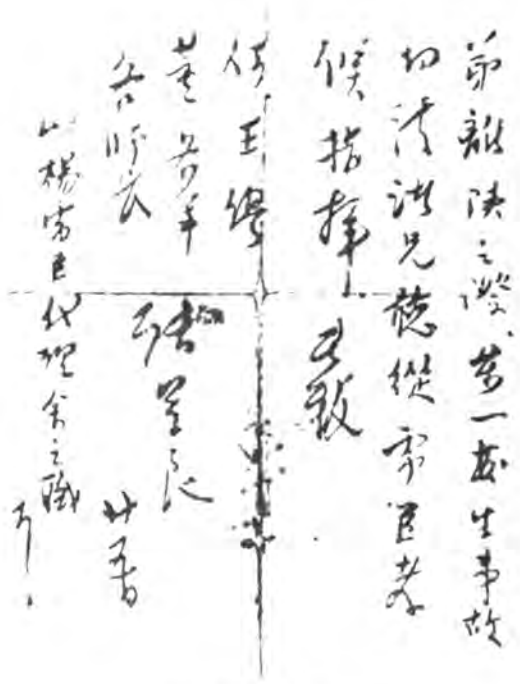 弟離陝之際、萬一發生事故
切請諸兄聽從虎臣孝
侯指揮、此致
何王繆
董各軍
各師長
張學良
廿五日
以楊虎臣代理余之職